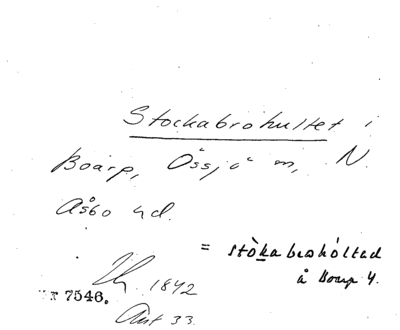 Stockabrohultet i
Boarp, Össjö sn, N.
Åsbo hd.
= stòka brohóltad
å Boarp 4.
1842
nr 7546.
Ant 33.